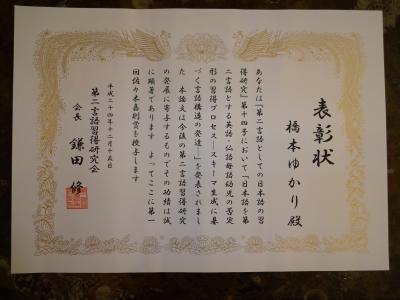 表彰状
橋本ゆかり 殿
あなたは『第二言語としての日本語の習
得研究』第十四号において「日本語を第
二言語とする英語・仏語母語幼児の否定
形の習得プロセス―スキーマ生成に基
づく言語構造の発達―」を発表されまし
た 本論文は今後の第二言語習得研究
の発展に寄与するものでその功績は誠
に顕著であります よってここに第一
回佐々木嘉則賞を授与します
平成二十四年十二月十五日
第二言語習得研究会
会長 鎌田 修